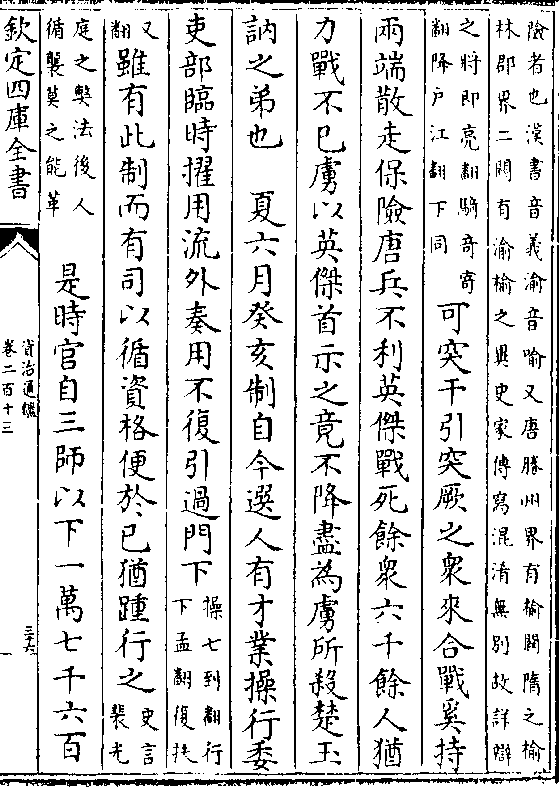 險者也漢書音義渝音喻又唐勝州界有榆關隋之榆
林郡界二關有渝榆之異史家傳寫混淆無別故詳辯
之將即亮翻騎奇寄
翻降戶江翻下同
可突干引突厥之衆來合戰奚持
兩端散走保險唐兵不利英傑戰死餘衆六千餘人猶
力戰不已虜以英傑首示之竟不降盡為虜所殺楚玉
訥之弟也　夏六月癸亥制自今選人有才業操行委
吏部臨時擢用流外奏用不復引過門下
操七到翻行
下孟翻復扶
又
翻
雖有此制而有司以循資格便於已猶踵行之
史言
裴光
庭之弊法後人
循襲莫之能革
是時官自三師以下一萬七千六百
欽定四庫全書
資治通鑑
卷二百十三
三十六